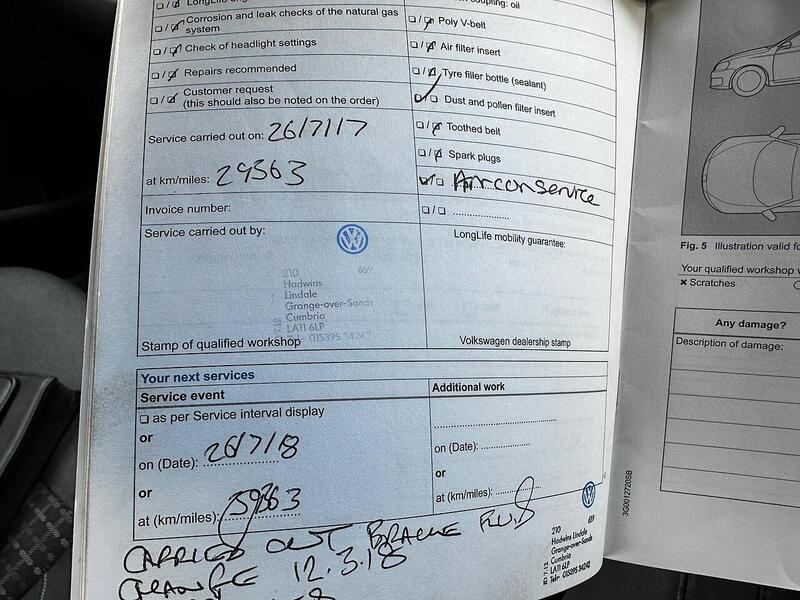 LongLife
coupling: oil
☐ / ☑ Corrosion and leak checks of the natural gas system
☐ / ☑ Poly V-belt
☐ / ☑ Check of headlight settings
☐ / ☑ Air filter insert
☐ / ☑ Repairs recommended
☐ / ☑ Tyre filler bottle (sealant)
☐ / ☑ Customer request
(this should also be noted on the order)
☑ / ☐ Dust and pollen filter insert
Service carried out on: 26/7/17
☐ / ☑ Toothed belt
☐ / ☑ Spark plugs
at km/miles: 29363
☑ / ☐ Aircon service
Invoice number:
☐ / ☐ ....................
Service carried out by:
LongLife mobility guarantee:
210 659
Hadwins
Lindale
Grange-over-Sands
Cumbria
LA11 6LP
015395 34242
Stamp of qualified workshop
Volkswagen dealership stamp
Your next services
Service event
Additional work
☐ as per Service interval display
or
on (Date): 26/7/18
on (Date):
or
or
at (km/miles): 39363
at (km/miles):
CARRIED OUT BRAKE FLUID
CHANGE 12.3.18
210 659
Hadwins Lindale
Grange-over-Sands
Cumbria
LA11 6LP
Tel: 015395 34242
3G0012720SB
Fig. 5 Illustration valid fo
Your qualified workshop
✖ Scratches
Any damage?
Description of damage: